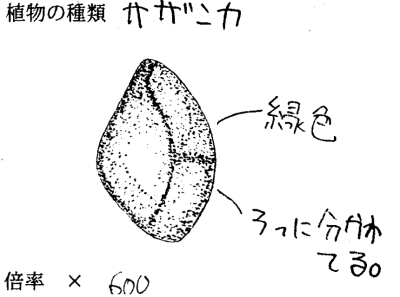 植物の種類 サザンカ
緑色
3つに分かれ
てる。
倍率 × 600